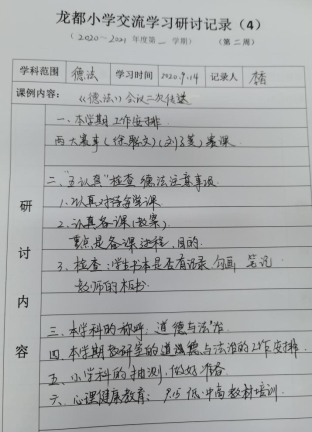 龙都小学交流学习研讨记录（4）
（2020～2021年度第一学期） （第二周）
学科范围 德法 学习时间 2020.9.14 记录人
课例内容：
《德法》会议二次
一、本学期工作安排
两大赛事 赛课
二、"五认真"检查德法注意事项
1.认真对待每学课
2.认真备课(教案)
重点是备课进程、目的
3.检查:学生书本是否有记录 勾画 笔记
教师的板书
三、本学科的称呼 道德与法治
四、本学期教研室的道德与法治的工作安排
五、小学科的抽测,做好准备
六、心理健康教育: 9.15 低中高教材培训
研讨内容